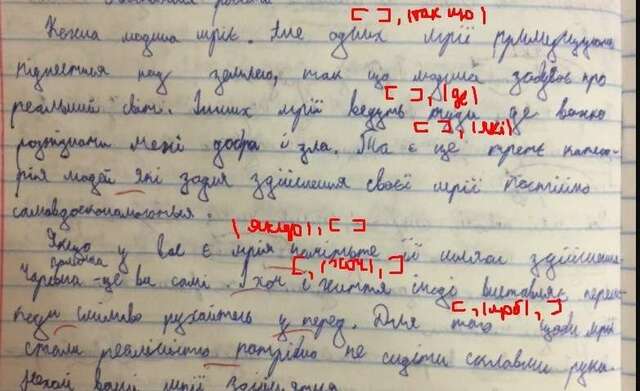 [ ], (так що)
Кожна людина мріє. Але одних мрії примушують
піднятися над землею, так що людина забуває про
[ ], (де)
реальний світ. Інших мрії ведуть туди де важко
[ ], (які)
розпізнати межі добра і зла. Та є ще третя катего-
рія людей які задля здійснення своєї мрії постійно
самовдосконалюються.
(якщо), [ ]
Якщо у вас є мрія її шлях здійснення
паличка
Чарівна -це ви самі. І хоч і життя іноді виставляє переш-
[ , (хоч), ]
коди сміливо рухайтесь у перед. Для того щоби мрії
[ , (щоб), ]
стали реальністю потрібно не сидіти склавши руки.
Нехай ваші мрії